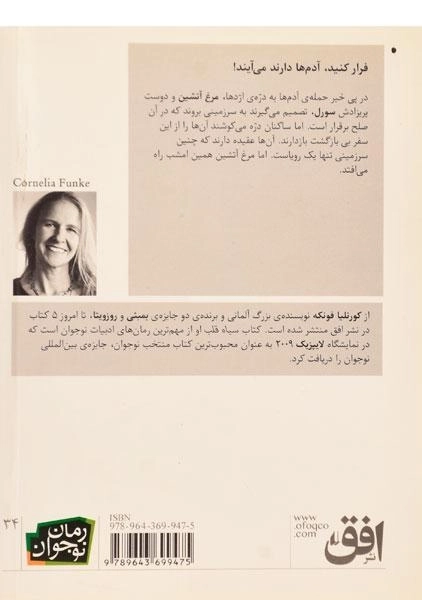 فرار کنید، آدم‌ها دارند می‌آیند!
در پی خبر حمله‌ی آدم‌ها به درّه‌ی اژدها، مرغ آتشین و دوست
پریزادش سورل، تصمیم می‌گیرند به سرزمینی بروند که در آن
صلح برقرار است. اما ساکنان درّه می‌کوشند آن‌ها را از این
سفر بی بازگشت بازدارند. آن‌ها عقیده دارند که چنین
سرزمینی تنها یک رویاست. اما مرغ آتشین همین امشب راه
می‌افتد.
Cornelia Funke
از کورنلیا فونکه نویسنده‌ی بزرگ آلمانی و برنده‌ی دو جایزه‌ی بمبئی و روزویتا، تا امروز ۵ کتاب
در نشر افق منتشر شده است. کتاب سیاه قلب او از مهم‌ترین رمان‌های ادبیات نوجوان است که
در نمایشگاه لایپزیک ۲۰۰۹ به عنوان محبوب‌ترین کتاب منتخب نوجوان، جایزه‌ی بین‌المللی
نوجوان را دریافت کرد.
۳۴
رمان
نوجوان
ISBN
978-964-369-947-5
9 789643 699475
www
.ofoqco
.com
نشر
افق